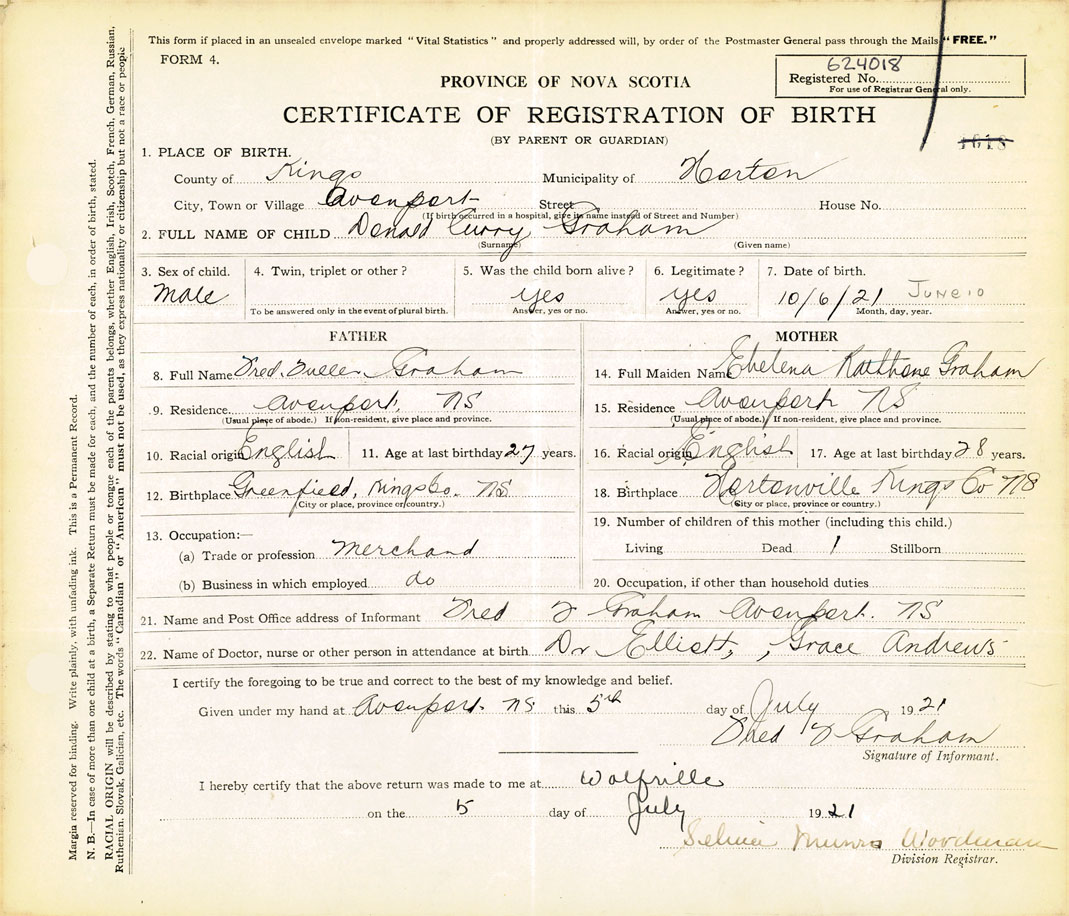 This form if placed in an unsealed envelope marked "Vital Statistics" and properly addressed will, by order of the Postmaster General pass through the Mails "FREE."
FORM 4.
624018
Registered No.
For use of Registrar General only.
PROVINCE OF NOVA SCOTIA
CERTIFICATE OF REGISTRATION OF BIRTH
(BY PARENT OR GUARDIAN)
4618
1. PLACE OF BIRTH.
County of Kings Municipality of Horton
City, Town or Village Avonport Street House No.
(If birth occurred in a hospital, give its name instead of Street and Number)
2. FULL NAME OF CHILD Donald Curry Graham
(Surname) (Given name)
3. Sex of child. 4. Twin, triplet or other? 5. Was the child born alive? 6. Legitimate? 7. Date of birth.
Male yes yes 10/6/21 JUNE 10
To be answered only in the event of plural birth. Answer, yes or no. Answer, yes or no. Month, day, year.
FATHER MOTHER
8. Full Name Fred Fuller Graham 14. Full Maiden Name Graham
9. Residence Avonport, NS 15. Residence Avonport NS
(Usual place of abode.) If non-resident, give place and province. (Usual place of abode.) If non-resident, give place and province.
10. Racial origin English 11. Age at last birthday 27 years. 16. Racial origin English 17. Age at last birthday 28 years.
12. Birthplace Greenfield, Kings Co. NS 18. Birthplace Hortonville Kings Co NS
(City or place, province or country.) (City or place, province or country.)
13. Occupation:— 19. Number of children of this mother (including this child.)
(a) Trade or profession Merchand Living Dead 1 Stillborn
(b) Business in which employed do 20. Occupation, if other than household duties
21. Name and Post Office address of Informant Fred F Graham Avonport. NS
22. Name of Doctor, nurse or other person in attendance at birth Dr Elliott, , Grace Andrews
I certify the foregoing to be true and correct to the best of my knowledge and belief.
Given under my hand at Avonport NS this 5th day of July 1921
Fred F Graham
Signature of Informant.
I hereby certify that the above return was made to me at Wolfville
on the 5 day of July 1921
Munro Woodman
Division Registrar.
Margin reserved for binding. Write plainly, with unfading ink. This is a Permanent Record.
N. B.—In case of more than one child at a birth, a Separate Return must be made for each, and the number of each, in order of birth, stated.
RACIAL ORIGIN will be described by stating to what people or tongue each of the parents belongs, whether English, Irish, Scotch, French, German, Russian,
Ruthenian, Slovak, Galician, etc. The words "Canadian" or "American" must not be used, as they express nationality or citizenship but not a race or people